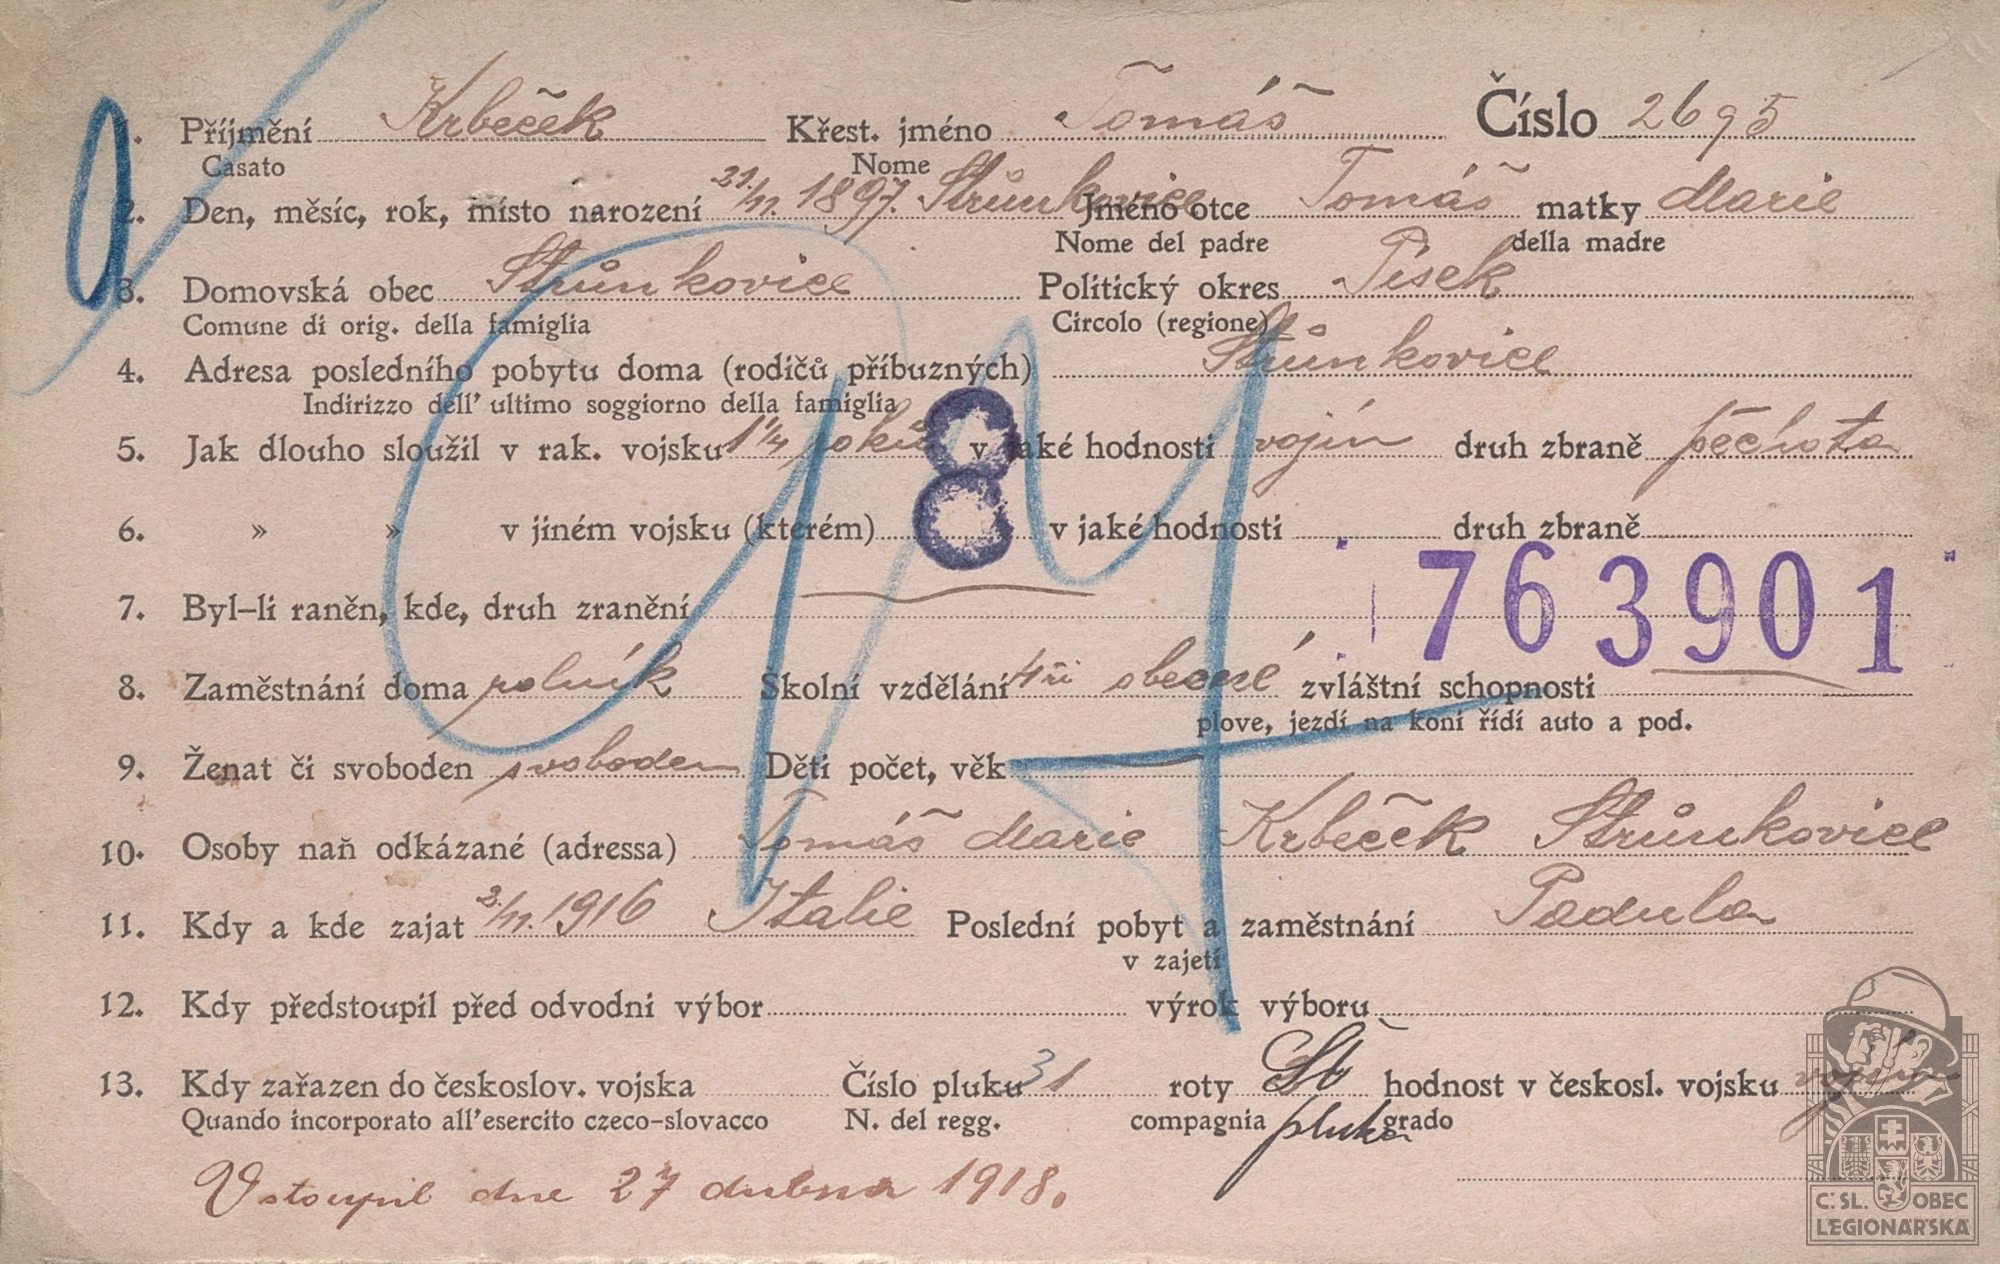 1. Příjmění Krbeček Křest. jméno Tomáš Číslo 2695
Casato Nome
2. Den, měsíc, rok, místo narození 21/11. 1897. Strůnkovice Jméno otce Tomáš matky Marie
Nome del padre della madre
3. Domovská obec Strůnkovice Politický okres Písek
Comune di orig. della famiglia Circolo (regione)
4. Adresa posledního pobytu doma (rodičů příbuzných) Strůnkovice
Indirizzo dell' ultimo soggiorno della famiglia
5. Jak dlouho sloužil v rak. vojsku 1 1/4 roků v jaké hodnosti vojín druh zbraně pěchota
6. » » v jiném vojsku (kterém) v jaké hodnosti druh zbraně
7. Byl-li raněn, kde, druh zranění
763901
8. Zaměstnání doma rolník Školní vzdělání tři obecné zvláštní schopnosti
plove, jezdí na koni řídí auto a pod.
9. Ženat či svoboden svoboden Děti počet, věk
10. Osoby naň odkázané (adressa) Tomáš Marie Krbeček Strůnkovice
11. Kdy a kde zajat 2/11. 1916 Italie Poslední pobyt a zaměstnání Padula
v zajetí
12. Kdy předstoupil před odvodni výbor výrok výboru
13. Kdy zařazen do českoslov. vojska Číslo pluku 31 roty Št hodnost v českosl. vojsku vojín
Quando incorporato all'esercito czeco-slovacco N. del regg. compagnia pluku grado
Vstoupil dne 27 dubna 1918.
Č. SL. OBEC
LEGIONÁŘSKÁ